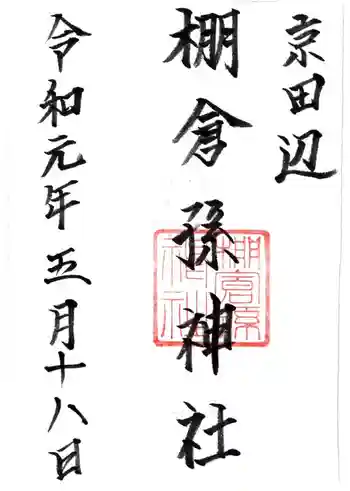 京田辺
棚倉孫神社
令和元年五月十八日
棚倉孫
神社